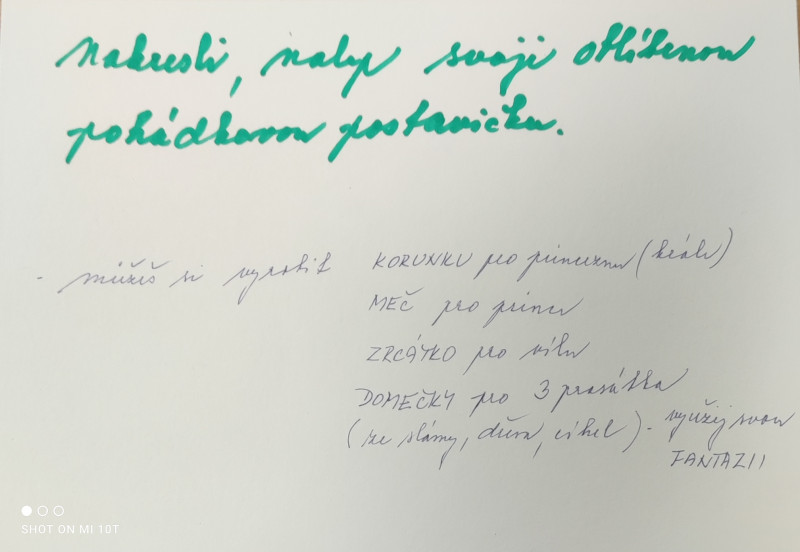 Nakresli, nalep svoji oblíbenou
pohádkovou postavičku.
- můžeš si vyrobit KORUNKU pro princeznu (krále)
MEČ pro prince
ZRCÁTKO pro vílu
DOMEČKY pro 3 prasátka
(ze slámy, dřeva, cihel) - využij svou
FANTAZII
SHOT ON MI 10T